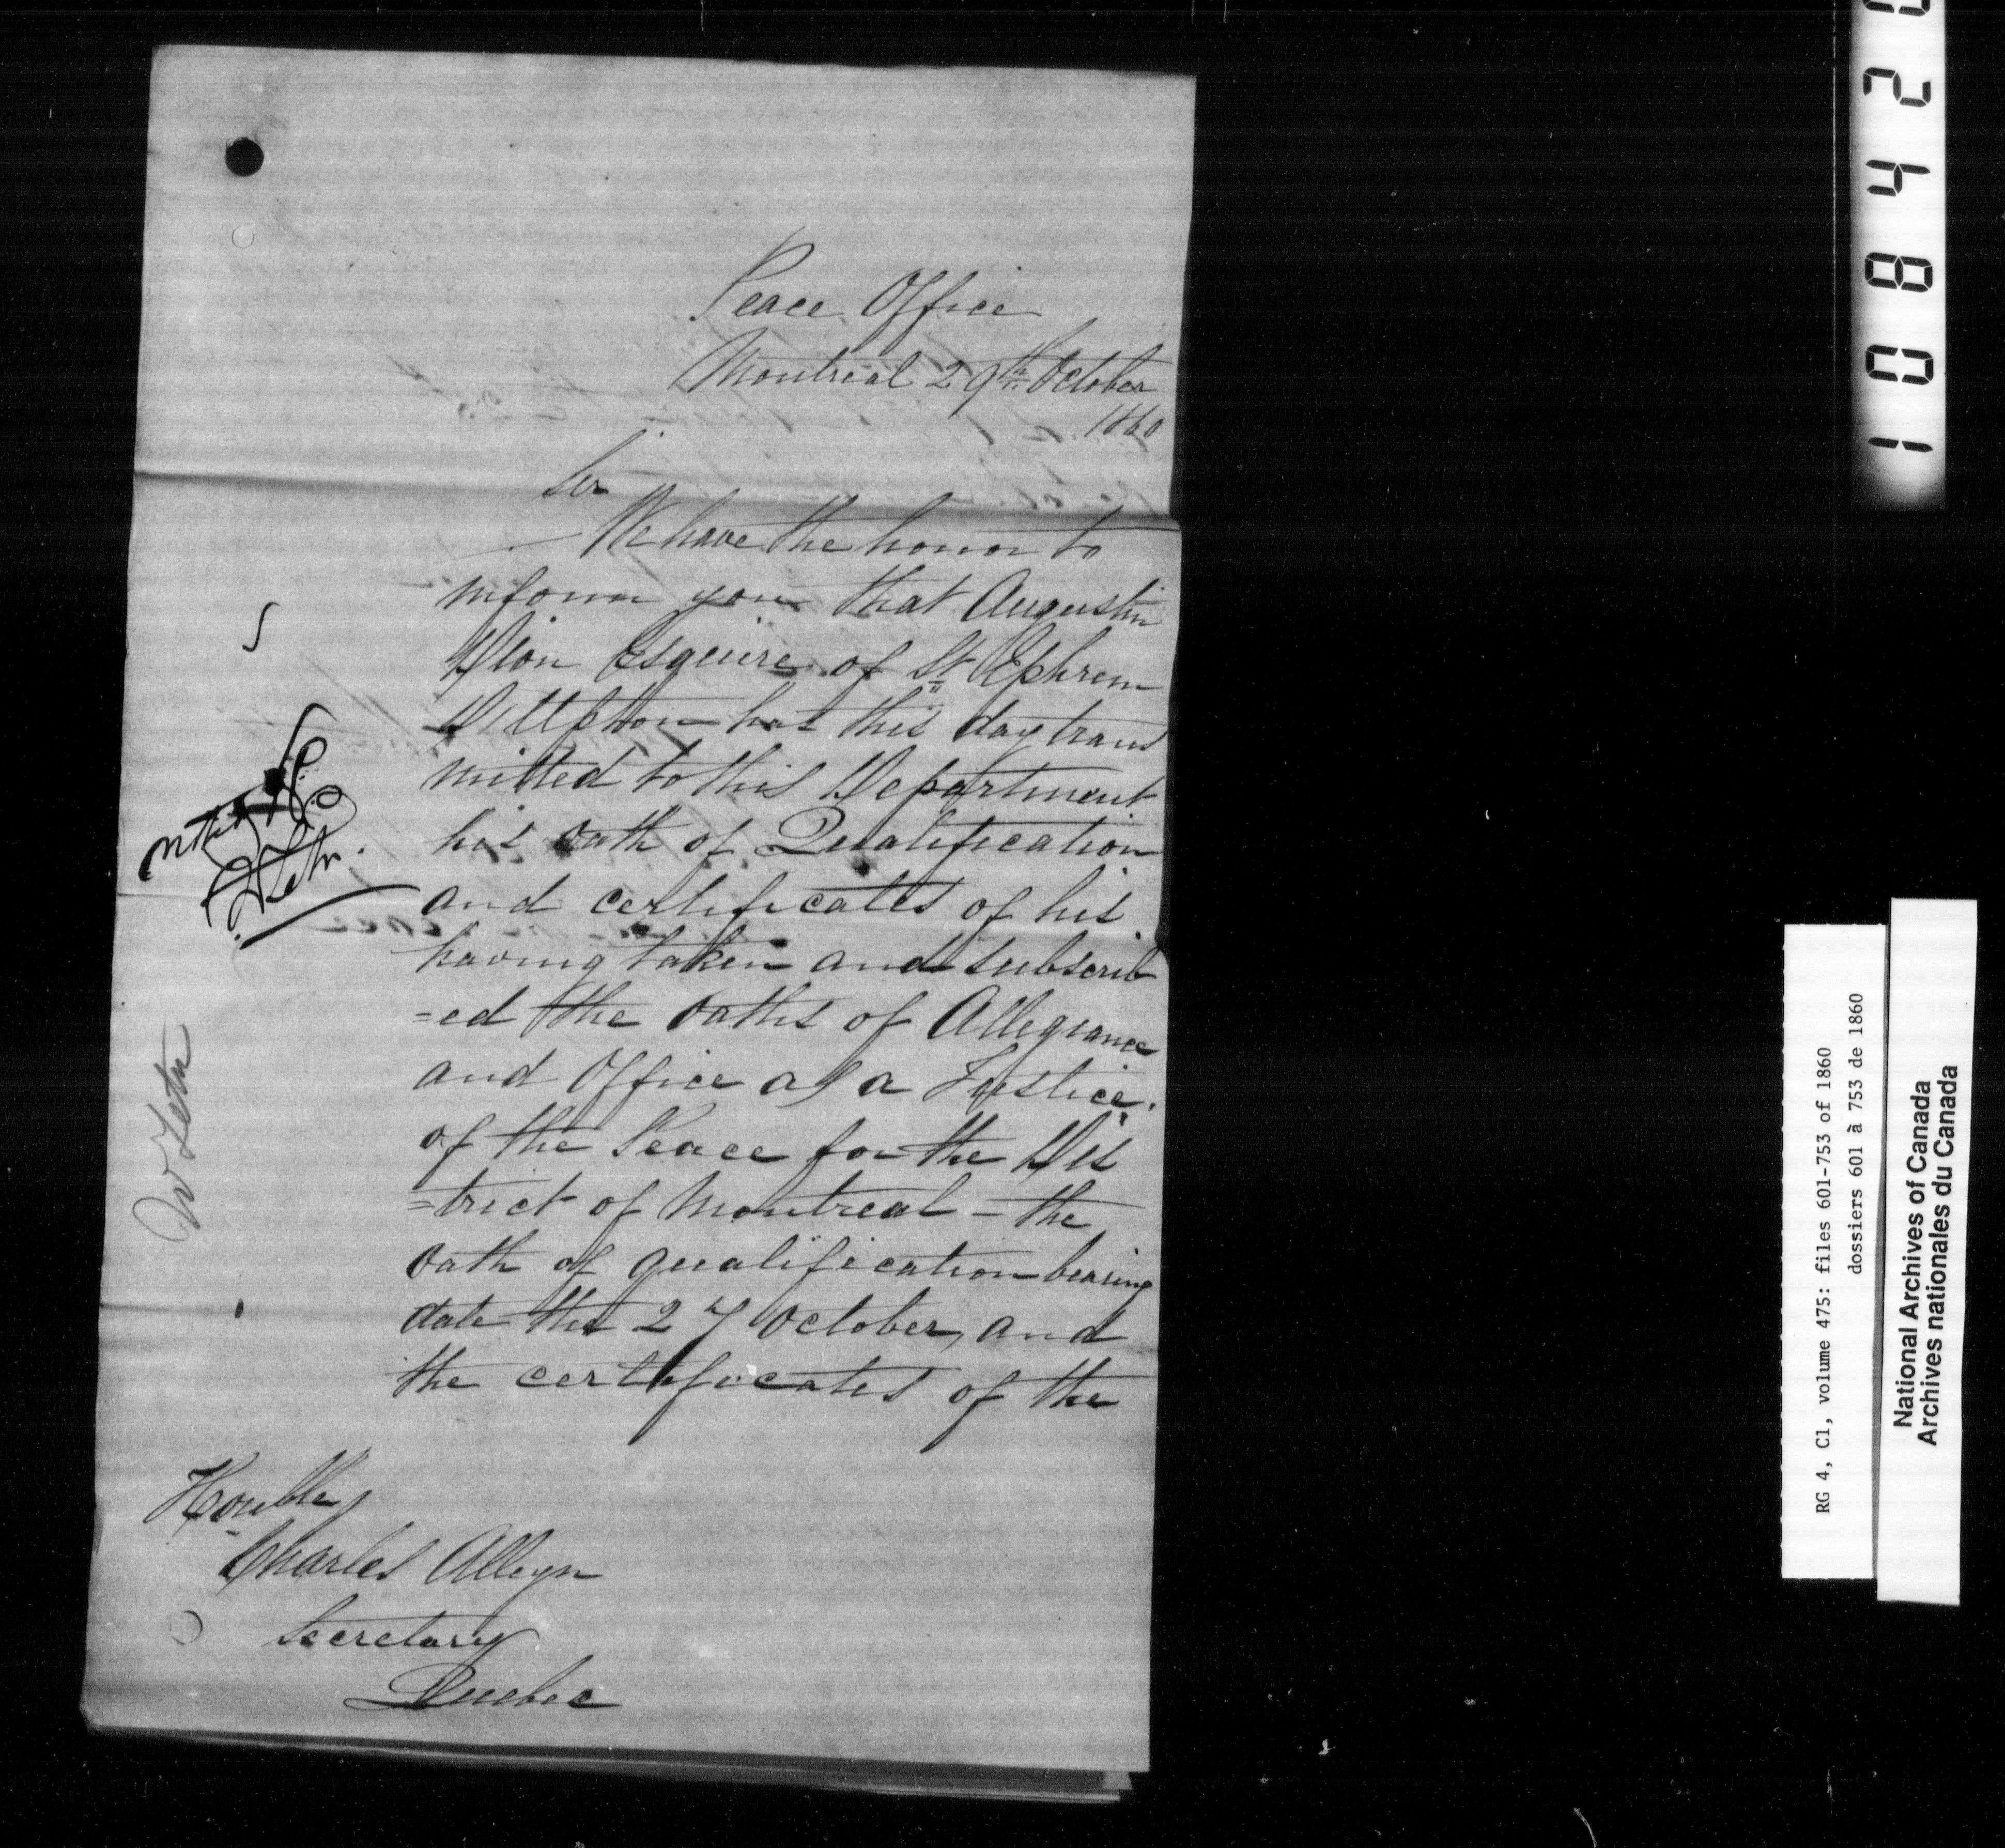 Peace Office
Montreal 29th October
1860
Sir
We have the honor to
inform you that Augustin
Dion Esquire of St Ephrem
D'Upton has this day trans
mitted to this Department
his oath of Qualification
and certificates of his
having taken and subscrib
=ed the oaths of Allegiance
and Office as a Justice
of the Peace for the Dis
=trict of Montreal - the
oath of qualification bearing
date the 27 October, and
the certificates of the
Honble
Charles Alleyn
Secretary
Quebec
10842
RG 4, C1, volume 475: files 601-753 of 1860
dossiers 601 à 753 de 1860
National Archives of Canada
Archives nationales du Canada